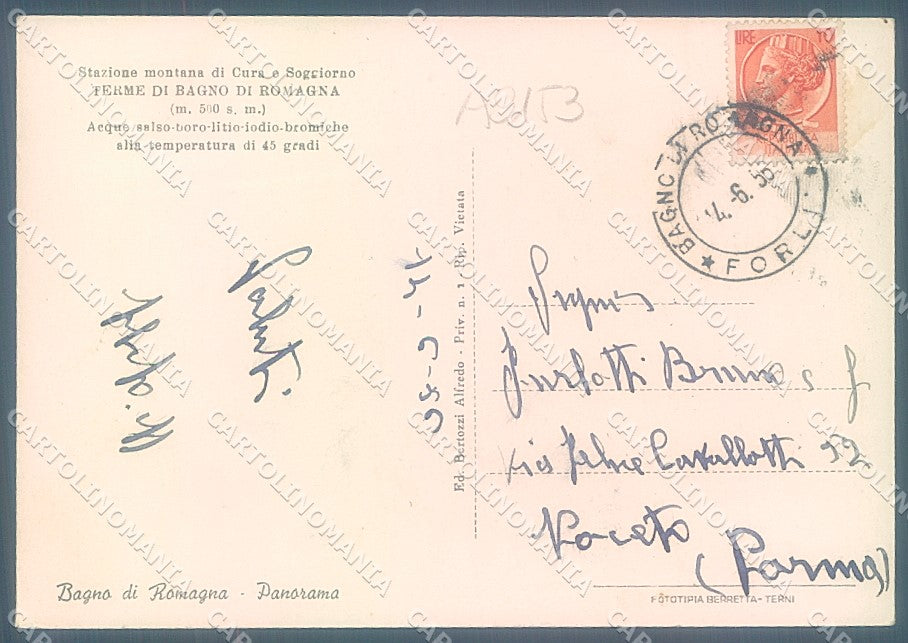 Stazione montana di Cura e Soggiorno
TERME DI BAGNO DI ROMAGNA
(m. 500 s. m.)
Acque salso-boro-litio-iodio-bromiche
alla temperatura di 45 gradi
LIRE 10
BAGNO DI ROMAGNA
FORLI
4.6.58
Saluti
Ed. Bertozzi Alfredo - Priv. n. 1 - Rip. Vietata
Furlotti Bruno
via Felice Cavallotti 52
Noceto
(Parma)
Bagno di Romagna - Panorama
FOTOTIPIA BERRETTA - TERNI
CARTOLINOMANIA